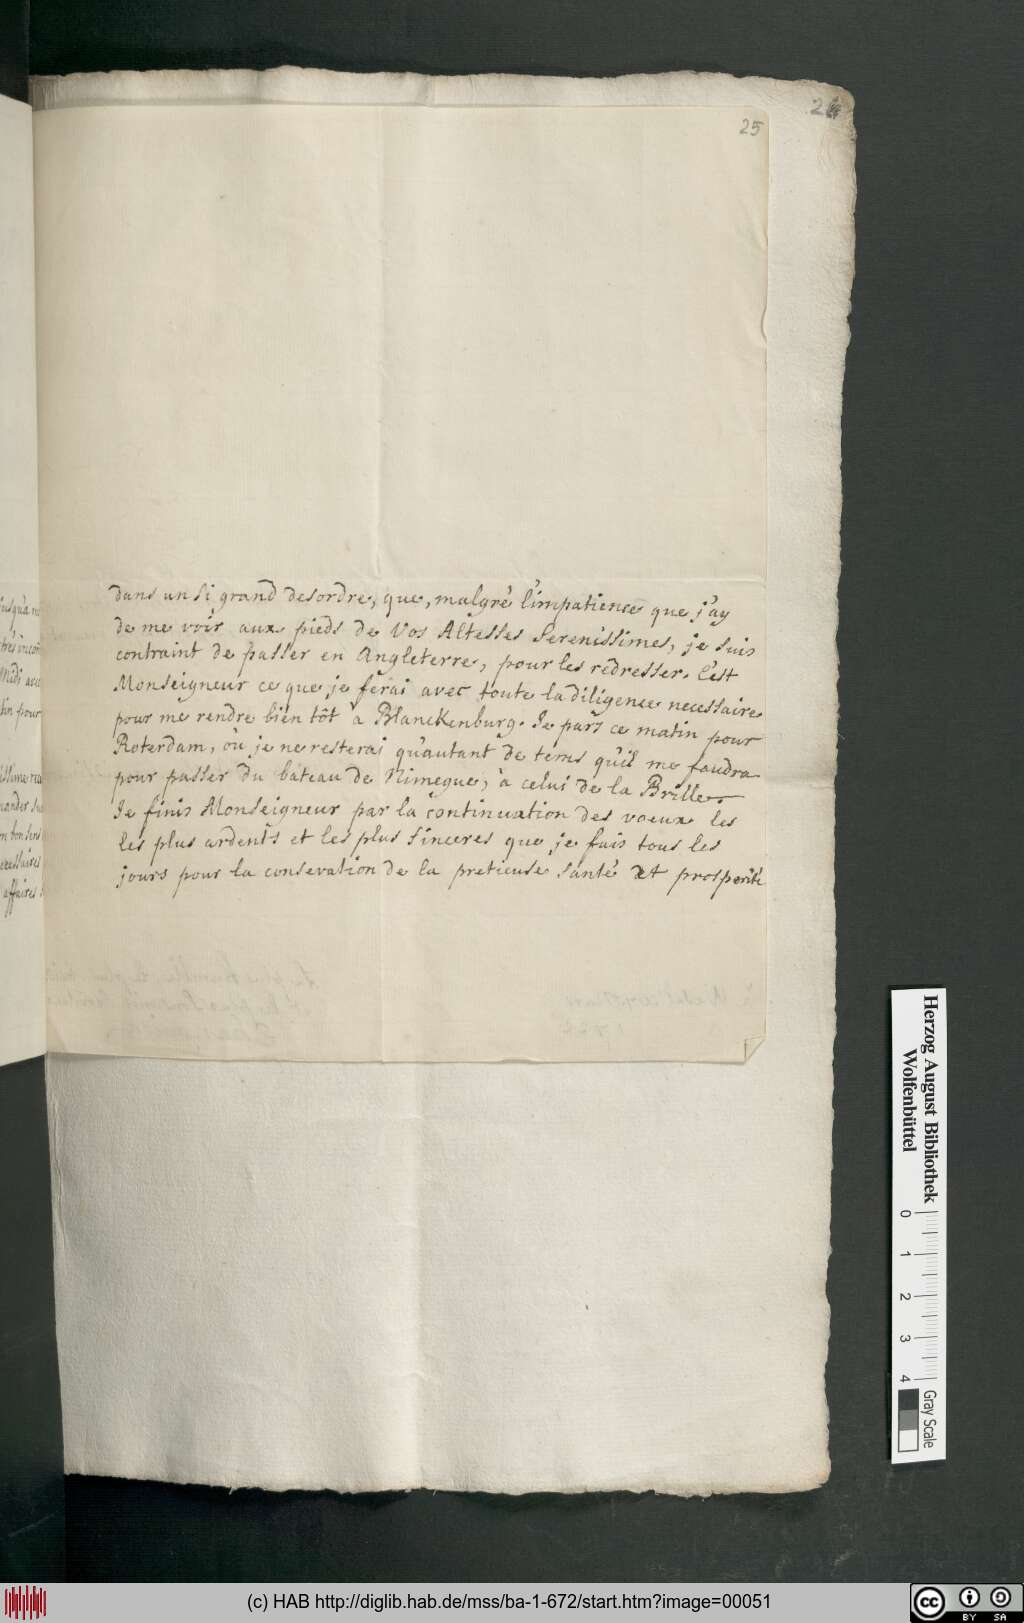 25
dans un si grand desordre, que, malgré l'impatience que j'ay
de me voir aux pieds de Vos Altesses Serenissimes, je suis
contraint de passer en Angleterre, pour les redresser. C'est
Monseigneur ce que je ferai avec toute la diligence necessaire
pour me rendre bien tôt à Blanckenburg. Je pars ce matin pour
Roterdam, où je ne resterai qu'autant de tems qu'il me faudra
pour passer du bateau de Nimegue, à celui de la Brille.
Je finis Monseigneur par la continuation des voeux les
les plus ardents et les plus sinceres que je fais tous les
jours pour la consevation de la pretieuse santé et prosperité
Herzog August Bibliothek
Wolfenbüttel
0 1 2 3 4
Gray Scale
(c) HAB http://diglib.hab.de/mss/ba-1-672/start.htm?image=00051
cc BY SA